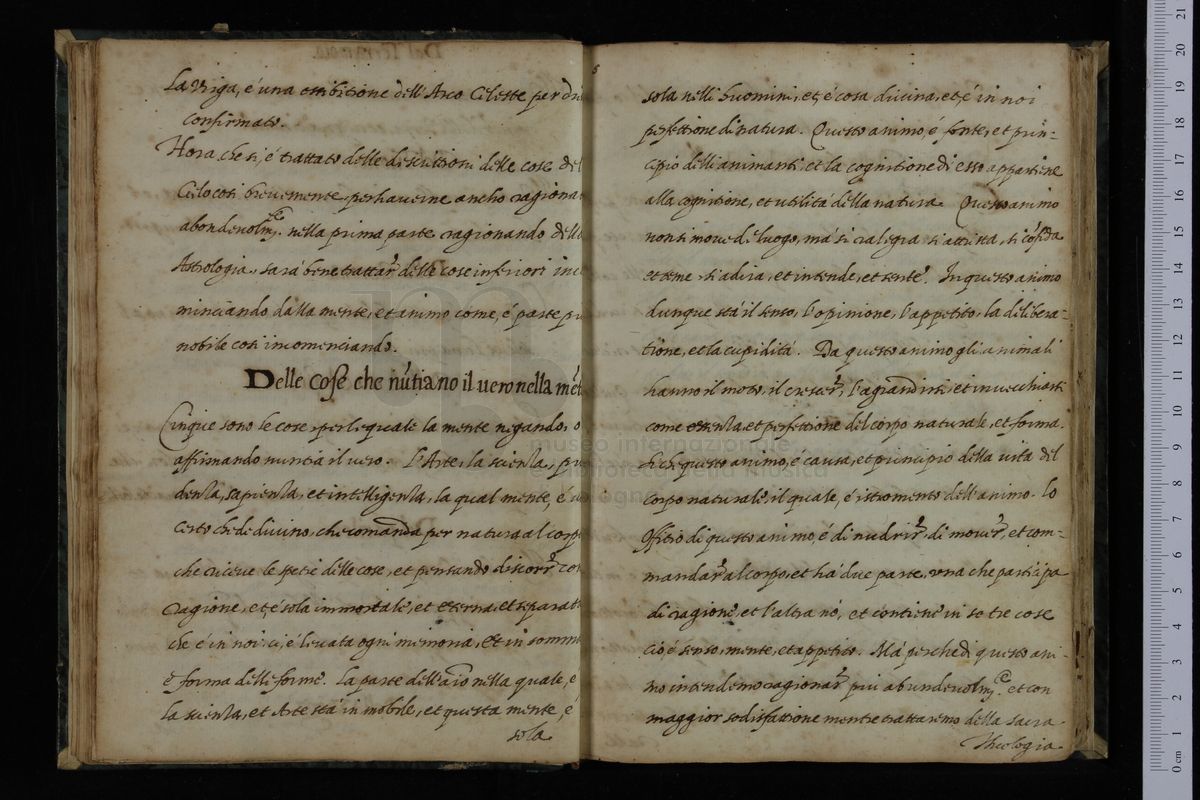 La Virga, é una essibitione dell'Arco Celeste per
confirmato.
Hora, che si, é trattato delle discussioni delle cose
Cielo così brevemente, perhaverne ancho ragiona
abondevolmte. nella prima parte ragionando dell
Astrologia, sará bene trattar' delle cose inferiori inc
minciando dalla mente, et animo come, é parte
nobile così incomenciando.
Delle cose che nūtiano il vero nella mēt
Cinque sono le cose, per le quale la mente negando, o
affirmando nuntia il vero. L'Arte, la scienza, pru
denza, sapienza, et intelligenza, la qual mente, é
certo che di divino, che comanda per natura al corp
che riceve le spetie delle cose, et pensando discorr' con
ragione, et é sola immortale, et eterna, et separat
che é in noi: ci é levata ogni memoria, et in somm
é forma delle forme. La parte dell'aīo nella quale, é
la scienza, et Arte stá immobile, et questa mente, é
sola
sola nelli huomini, et é cosa divina, et é in noi
perfettione di natura. Questo animo, é fonte, et prin-
cipio delli animanti, et la cognitione di esso appartiene
alla cognitione, et utilitá della natura. Questo animo
non si move di luogo, má si ralegra si attrista, si cōfida
et teme si adira, et intende, et sente. In questo animo
dunque stá il senso, l'opinione, l'appetito, la delibera-
tione, et la cupiditá. Da questo animo gli animali
hanno il moto, il crescer', l'agrandirsi, et invecchiarsi
come essenza, et perfettione del corpo naturale, et forma.
Si che questo animo, é causa, et principio della vita del
corpo naturale, il quale, é istromento dell'animo. Lo
Offitio di questo animo, é di nudrir', di mover', et com-
mandar' al corpo, et há due parte, una che participa
di ragione, et l'altra nó, et contiene in se tre cose
cioé senso, mente, et appetito. Má perche di questo ani-
mo intendemo ragionar' piu abundevolmte. et con
maggior sodisfattione mentre trattaremo della sacra
Theologia
museo internazionale
e biblioteca della musica